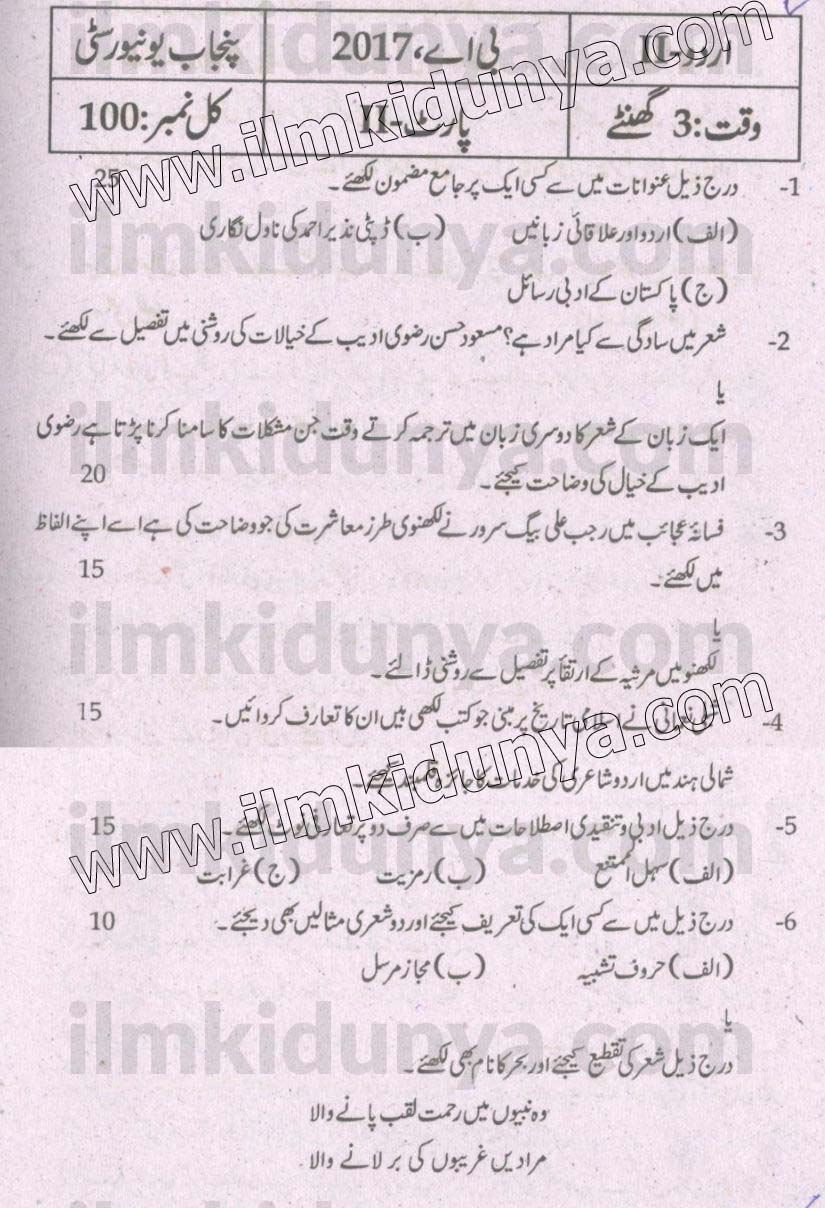 اردو-II بی اے، 2017 پنجاب یونیورسٹی
وقت: 3 گھنٹے پارٹ-II کل نمبر: 100
-1 درج ذیل عنوانات میں سے کسی ایک پر جامع مضمون لکھئے۔ 25
(الف) اردو اور علاقائی زبانیں (ب) ڈپٹی نذیر احمد کی ناول نگاری
(ج) پاکستان کے ادبی رسائل
-2 شعر میں سادگی سے کیا مراد ہے؟ مسعود حسن رضوی ادیب کے خیالات کی روشنی میں تفصیل سے لکھئے۔
یا
ایک زبان کے شعر کا دوسری زبان میں ترجمہ کرتے وقت جن مشکلات کا سامنا کرنا پڑتا ہے رضوی
ادیب کے خیال کی وضاحت کیجئے۔ 20
-3 فسانۂ عجائب میں رجب علی بیگ سرور نے لکھنوی طرز معاشرت کی جو وضاحت کی ہے اسے اپنے الفاظ
میں لکھئے۔ 15
یا
لکھنو میں مرثیہ کے ارتقأ پر تفصیل سے روشنی ڈالئے۔
-4 نعمانی نے اسلامی تاریخ پر مبنی جو کتب لکھی ہیں ان کا تعارف کروائیں۔ 15
شمالی ہند میں اردو شاعری کی خدمات کا جائزہ قلمبند کیجئے۔
-5 درج ذیل ادبی و تنقیدی اصطلاحات میں سے صرف دو پر تعارفی نوٹ لکھئے۔ 15
(الف) سہل الممتنع (ب) رمزیت (ج) غرابت
-6 درج ذیل میں سے کسی ایک کی تعریف کیجئے اور دو شعری مثالیں بھی دیجئے۔ 10
(الف) حروف تشبیہ (ب) مجاز مرسل
یا
درج ذیل شعر کی تقطیع کیجئے اور بحر کا نام بھی لکھئے۔
وہ نبیوں میں رحمت لقب پانے والا
مرادیں غریبوں کی بر لانے والا
www.ilmkidunya.com
www.ilmkidunya.com
ilmkidunya.com
ilmkidunya.com
ilmkidunya.com
ilmkidunya.com
ilmkidunya.com
ilmkidunya.com